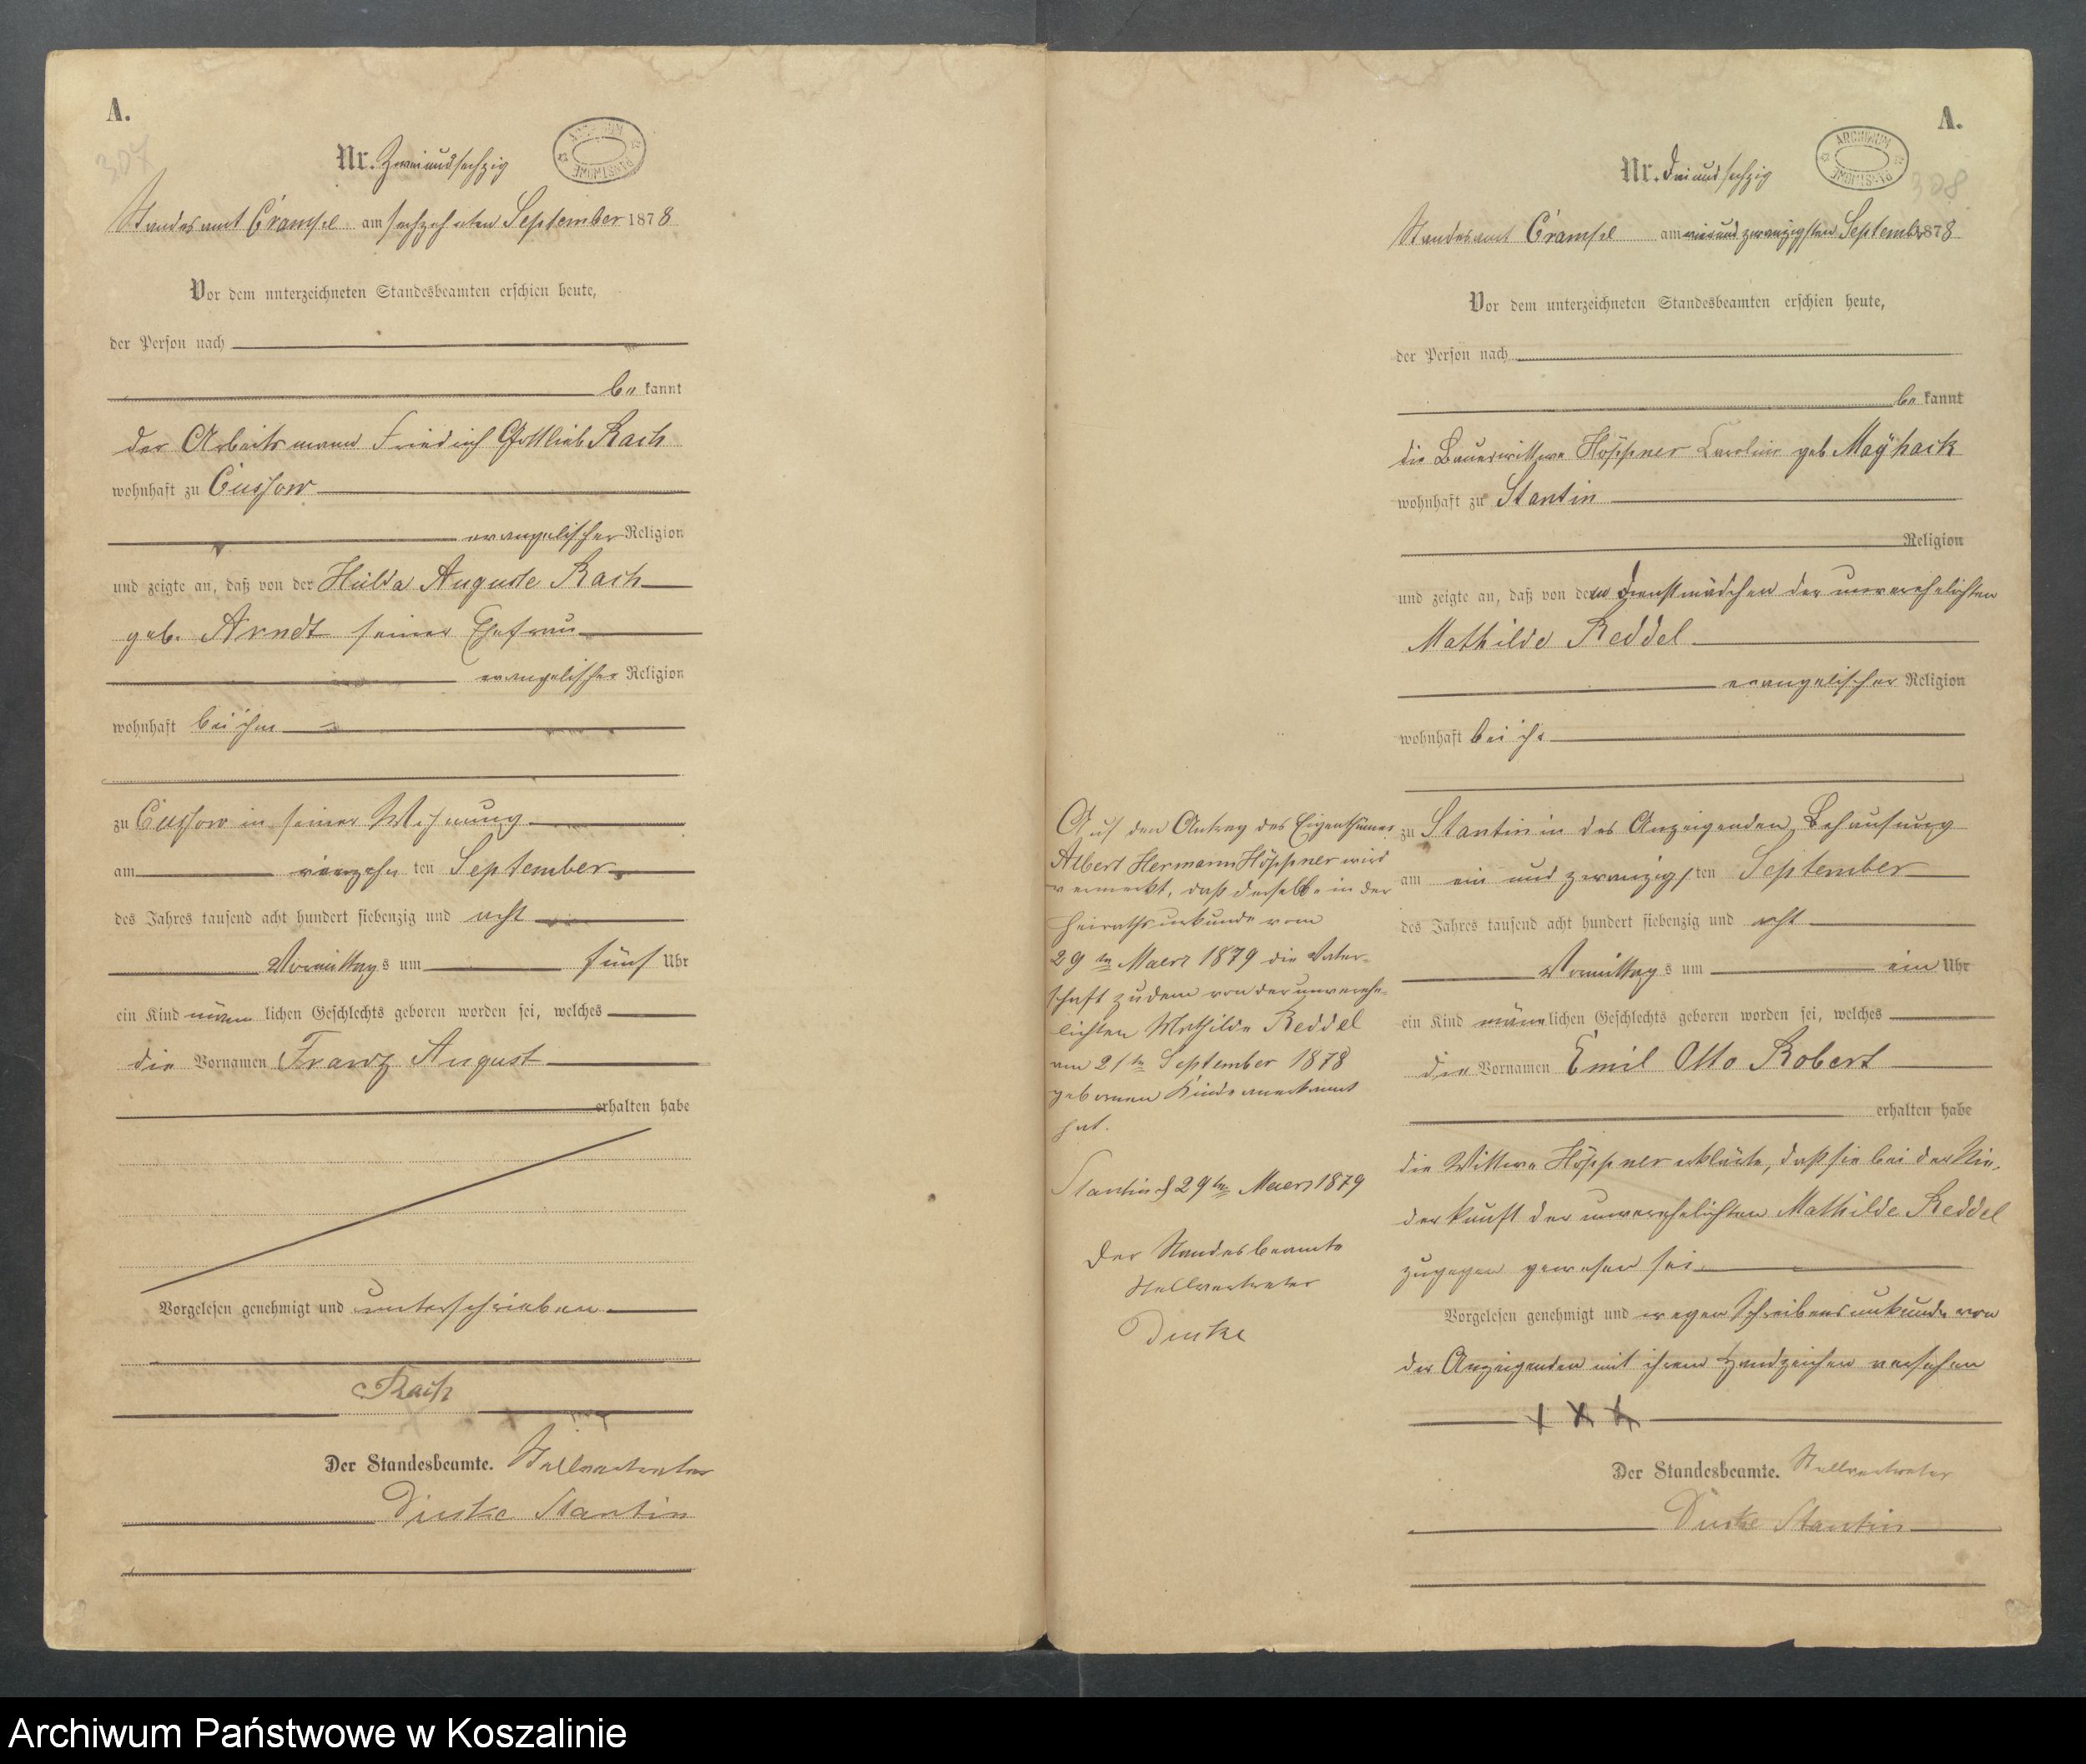 A.
307
Nr. Zweiundsechzig
ARCHIWUM PAŃSTWOWE
Standesamt Crampe am sechzehnten September 1878
Vor dem unterzeichneten Standesbeamten erschien heute,
der Person nach
be kannt
der Arbeitsmann Friedrich Gottlieb Rach
wohnhaft zu Cussow
evangelischer Religion
und zeigte an, daß von der Hulda Auguste Rach
geb. Arndt seiner Ehefrau
evangelischer Religion
wohnhaft bei ihm
zu Cussow in seiner Wohnung
am vierzehn ten September
des Jahres tausend acht hundert siebenzig und acht
Vormittags um fünf Uhr
ein Kind männ lichen Geschlechts geboren worden sei, welches
die Vornamen Franz August
erhalten habe
Vorgelesen genehmigt und unterschrieben
Rach
Der Standesbeamte. Stellvertreter
Stantin
Auf den Antrag des Eigenthümer
Albert Hermann Höppner wird
vermerkt, daß derselbe in der
Heirathsurkunde vom
29 ten Maerz 1879 die Vater-
schaft zu dem von der unverehe-
lichten Mathilde Reddel
am 21 ten September 1878
geborenen Kinde anerkannt
hat.
Stantin d 29 ten Maerz 1879
Der Standesbeamte
Stellvertreter
A.
308
Nr. Dreiundsechzig
ARCHIWUM PAŃSTWOWE
Standesamt Crampe am einundzwanzigsten September 1878
Vor dem unterzeichneten Standesbeamten erschien heute,
der Person nach
be kannt
die Bauerwittwe Höppner Caroline geb Mayhack
wohnhaft zu Stantin
Religion
und zeigte an, daß von dem Dienstmädchen der unverehelichten
Mathilde Reddel
evangelischer Religion
wohnhaft bei ihr
zu Stantin in des Anzeigenden Behausung
am ein und zwanzigs ten September
des Jahres tausend acht hundert siebenzig und acht
Vormittags um ein Uhr
ein Kind männ lichen Geschlechts geboren worden sei, welches
die Vornamen Emil Otto Robert
erhalten habe
die Wittwe Höppner erklärte, daß sie bei der Nie-
derkunft der unverehelichten Mathilde Reddel
zugegen gewesen sei
Vorgelesen genehmigt und wegen Schreibensunkunde von
der Anzeigenden mit ihrem Handzeichen versehen
+ + +
Der Standesbeamte. Stellvertreter
Stantin
Archiwum Państwowe w Koszalinie